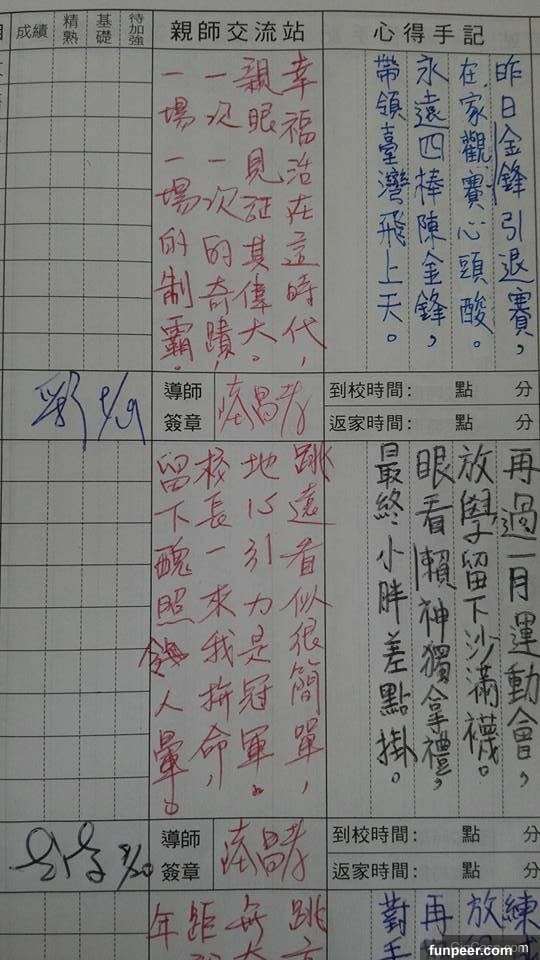 待加強
基礎
精熟
成績
親師交流站
心得手記
昨日金鋒引退賽,
在家觀賽心頭酸。
永遠四棒陳金鋒,
帶領臺灣飛上天。
幸福活在這時代,
親眼見証其偉大。
一次一次的奇蹟,
一場一場的制霸。
導師
簽章
到校時間: 點 分
返家時間: 點 分
9/19
再過一月運動會,
放學留下沙滿襪。
眼看賴神獨拿禮,
最終小胖差點掛。
跳遠看似很簡單,
地心引力是冠軍。
校長一來我拚命,
留下醜照人暈。
導師
簽章
到校時間: 點 分
返家時間: 點 分
9/20
練
放
再
對
跳
距
年
funpeer.com